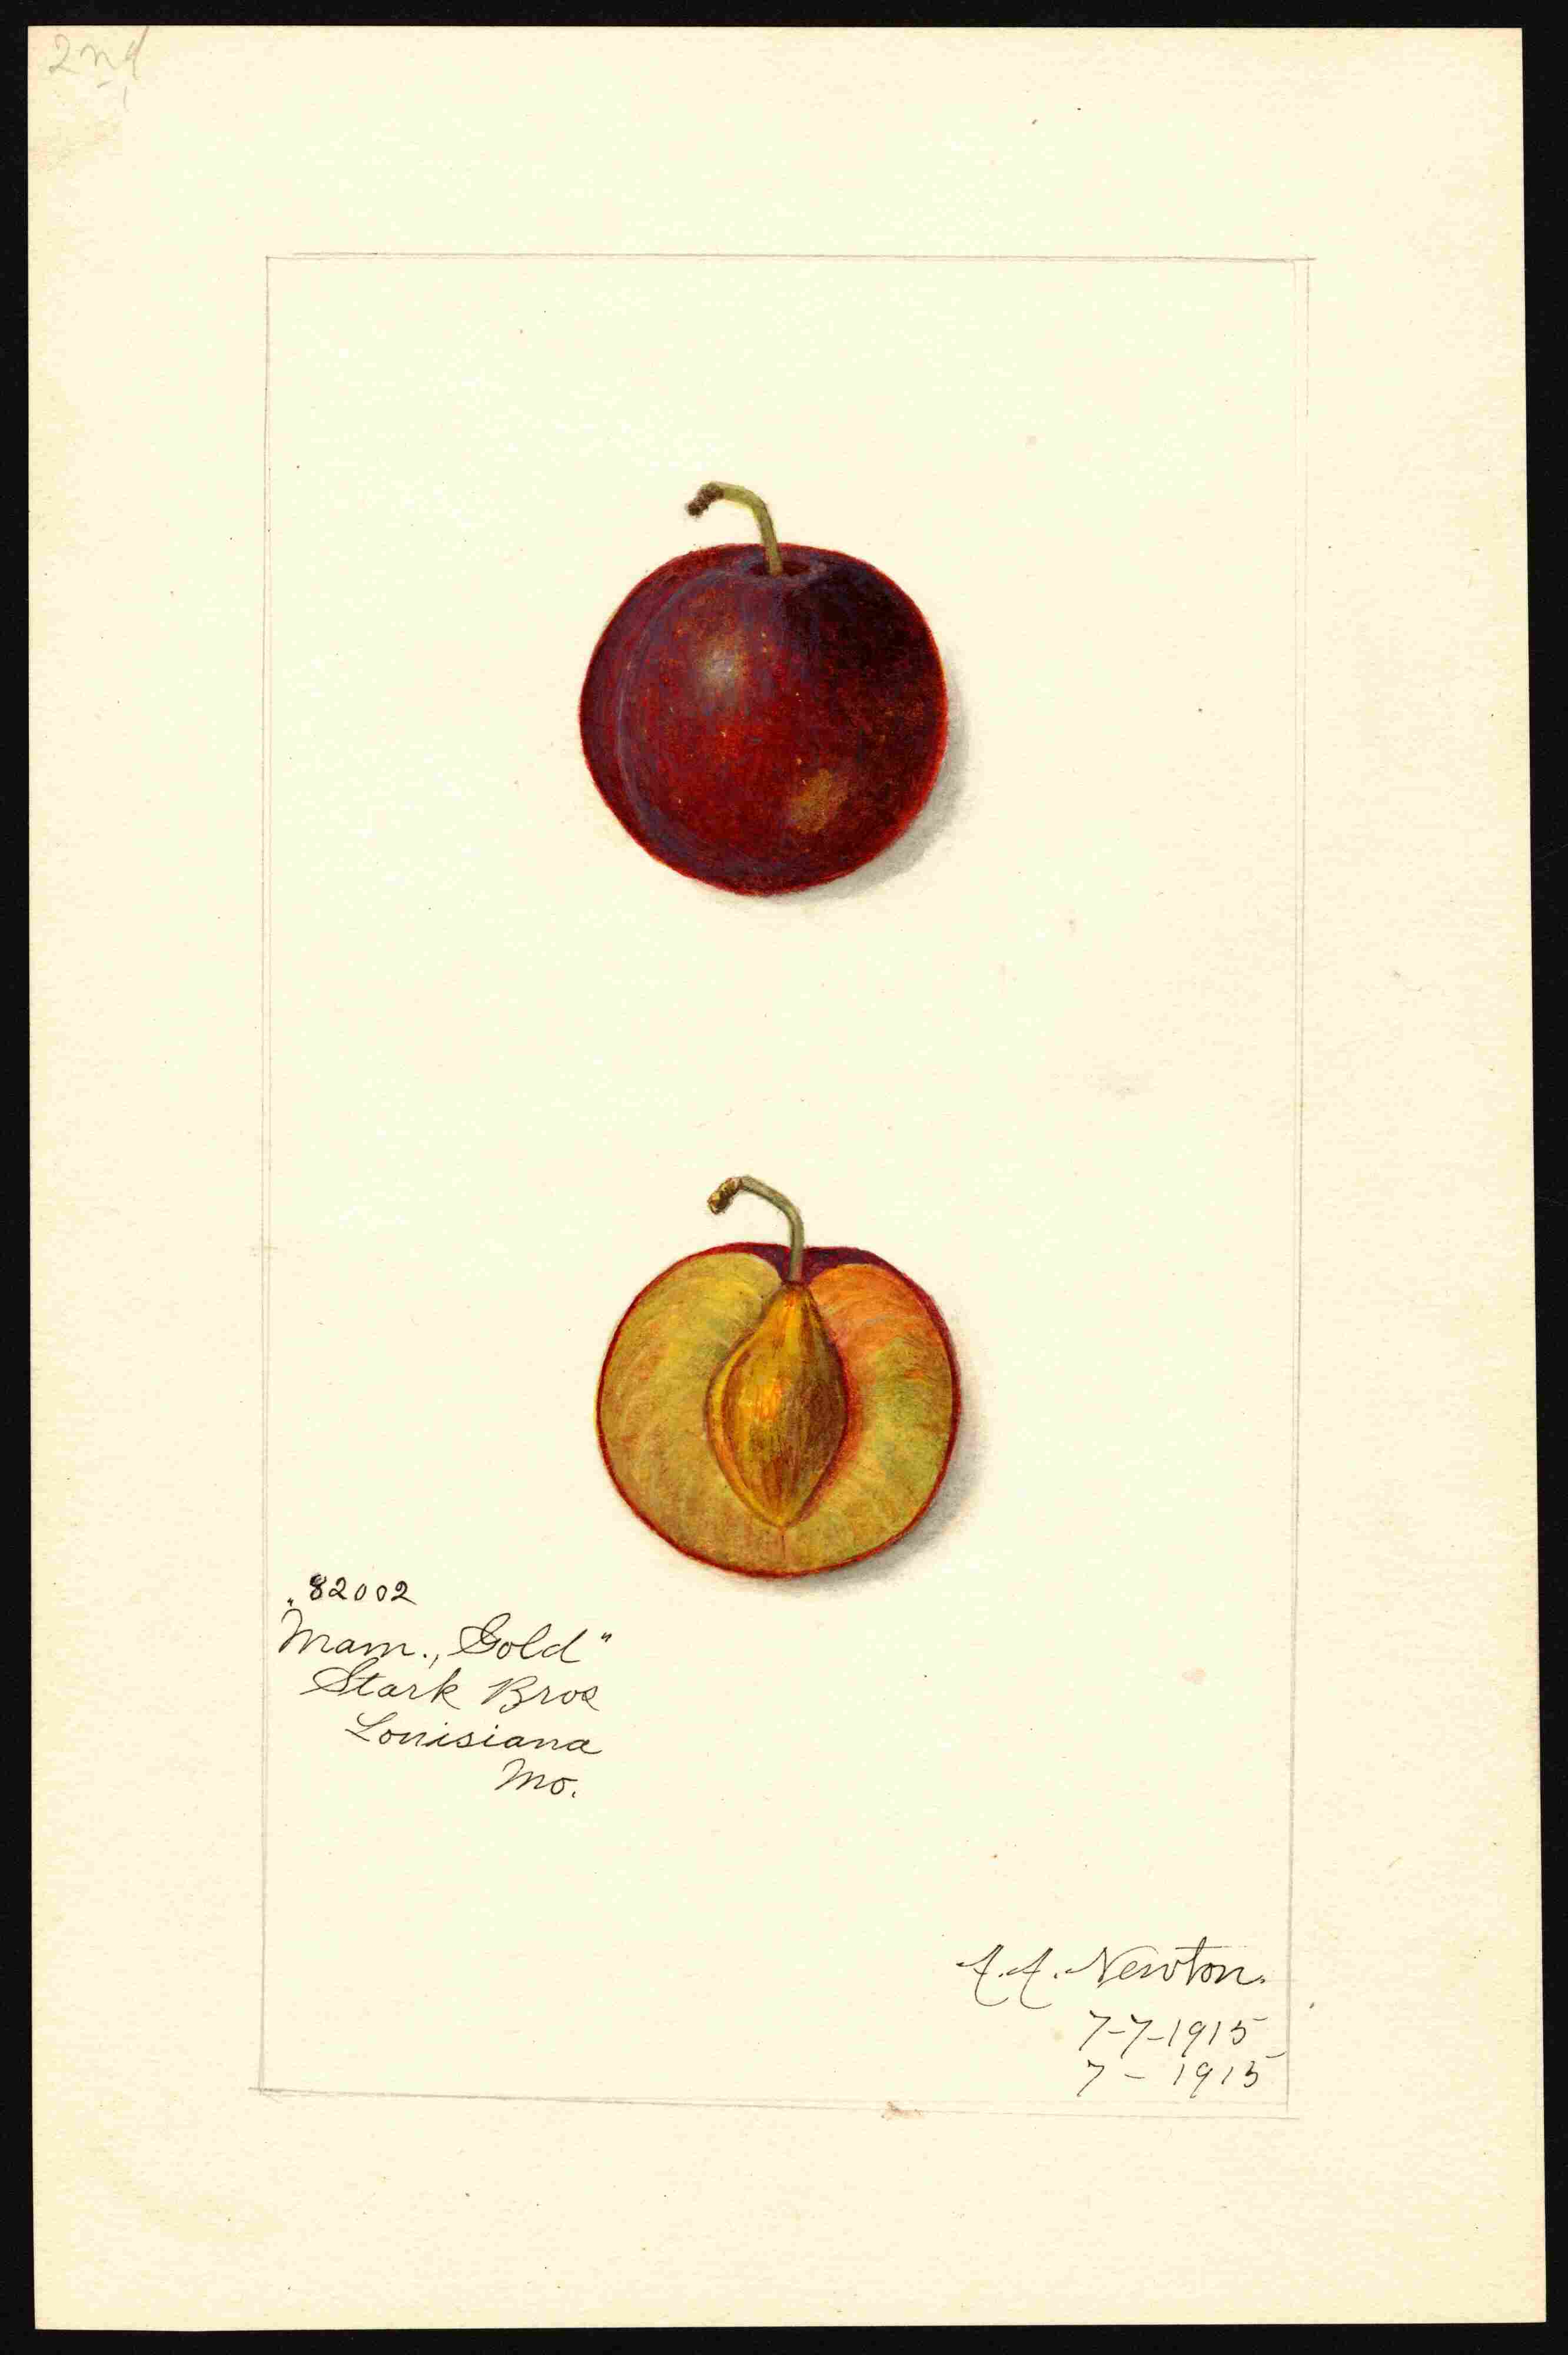 2nd
82002
"Mam. "Gold"
Stark Bros
Louisiana
Mo.
A.A. Newton.
7-7-1915
7 - 1915